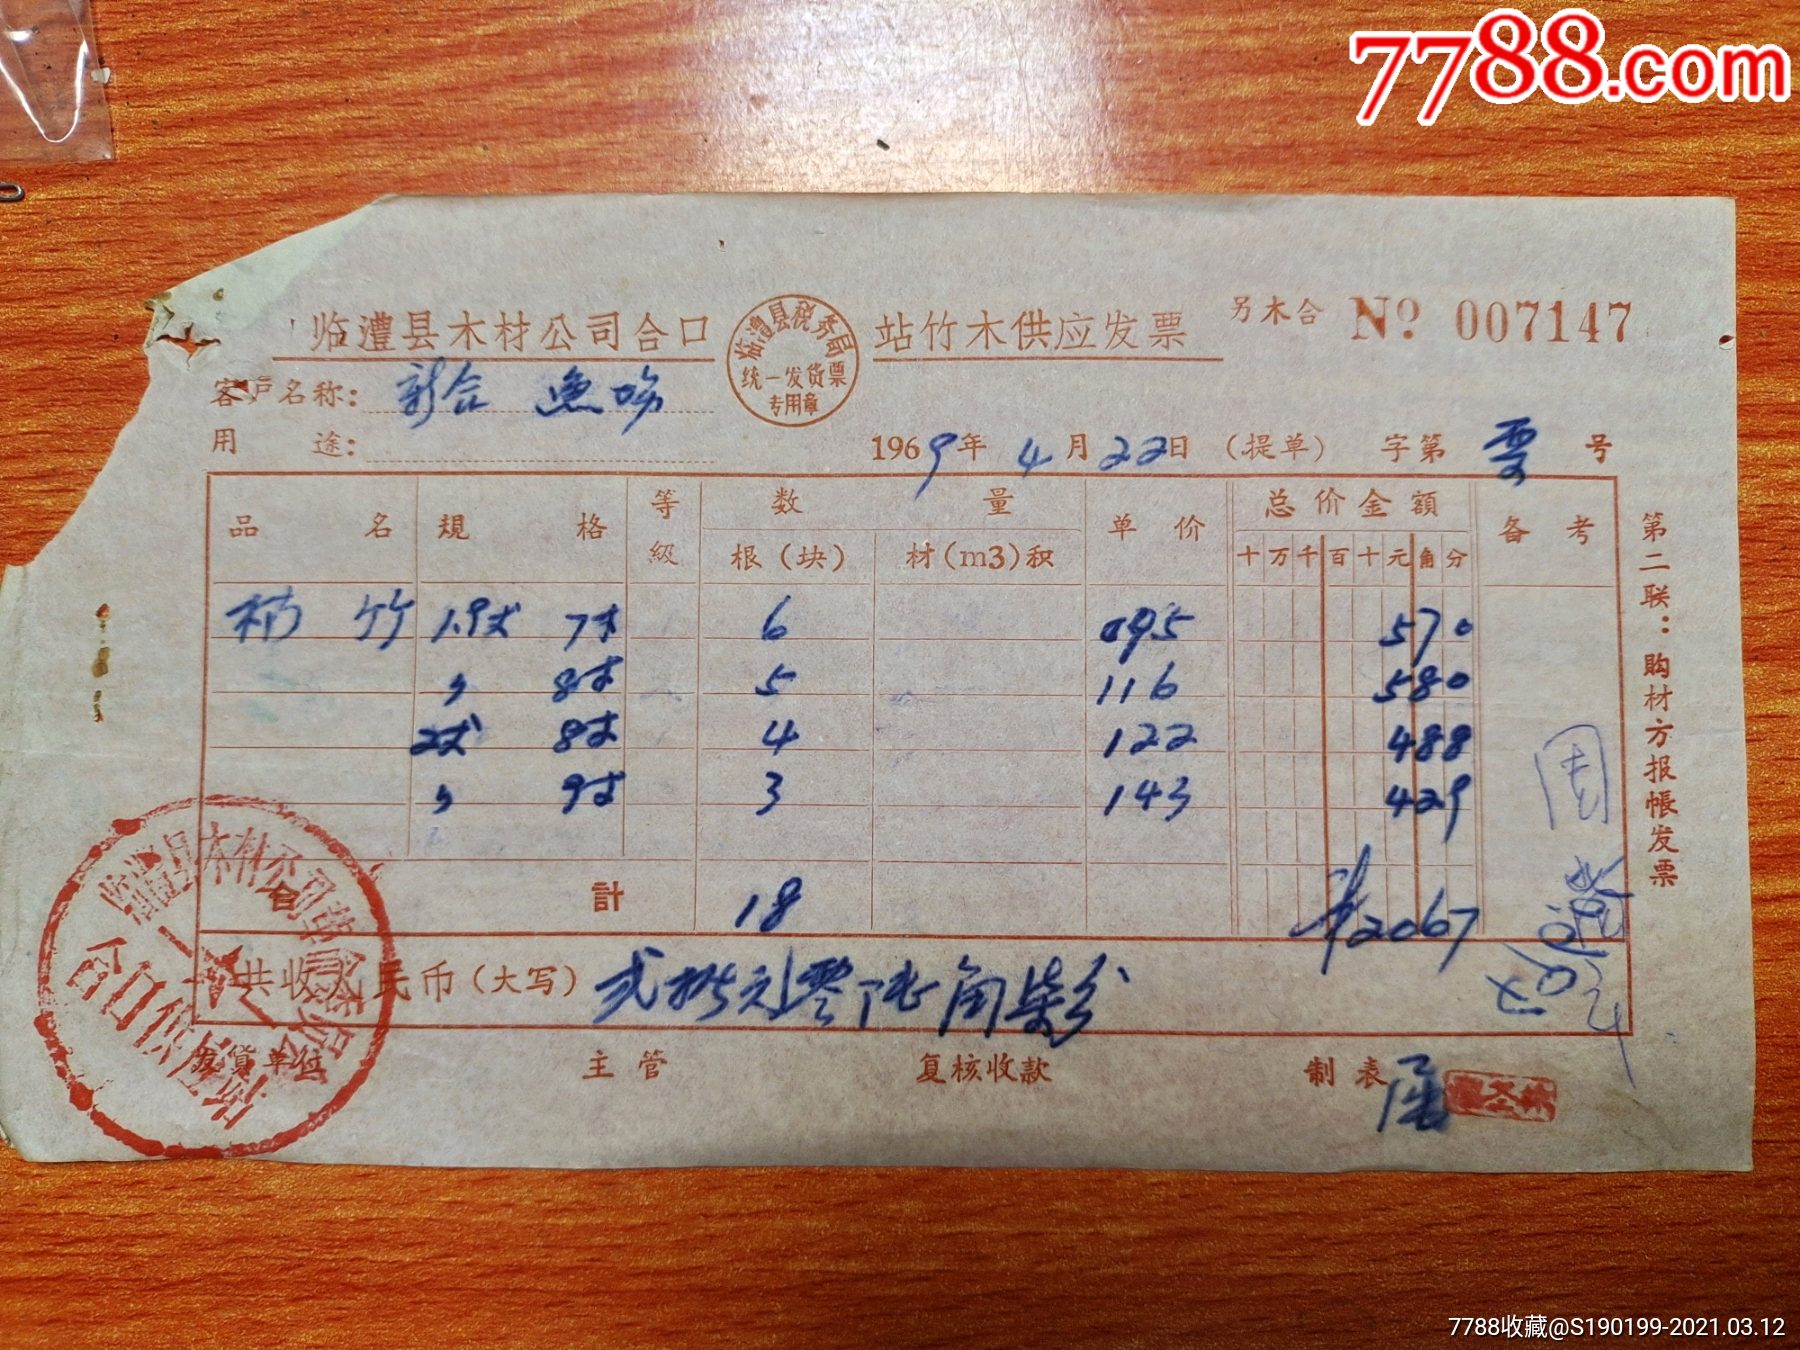 7788.com
临澧县木材公司合口 站竹木供应发票 另木合 No 007147
临澧县税务局
统一发货票
专用章
客户名称: 新合 渔场
用 途: 1969年 4月22日 (提单) 字第 号
品 名 规 格 等级 数 量 单 价 总价金额 备 考
根(块) 材(m3)积 十万千百十元角分
楠 竹 1.9丈 7寸 6 095 570
〃 8寸 5 116 580
2丈 8寸 4 122 488
〃 9寸 3 143 429
合 計 18 2067
共收人民币(大写) 贰拾元零陆角柒分
发貨单位 主管 复核收款 制表
第二联:购材方报帐发票
临澧县木材公司
合口
7788收藏@S190199-2021.03.12